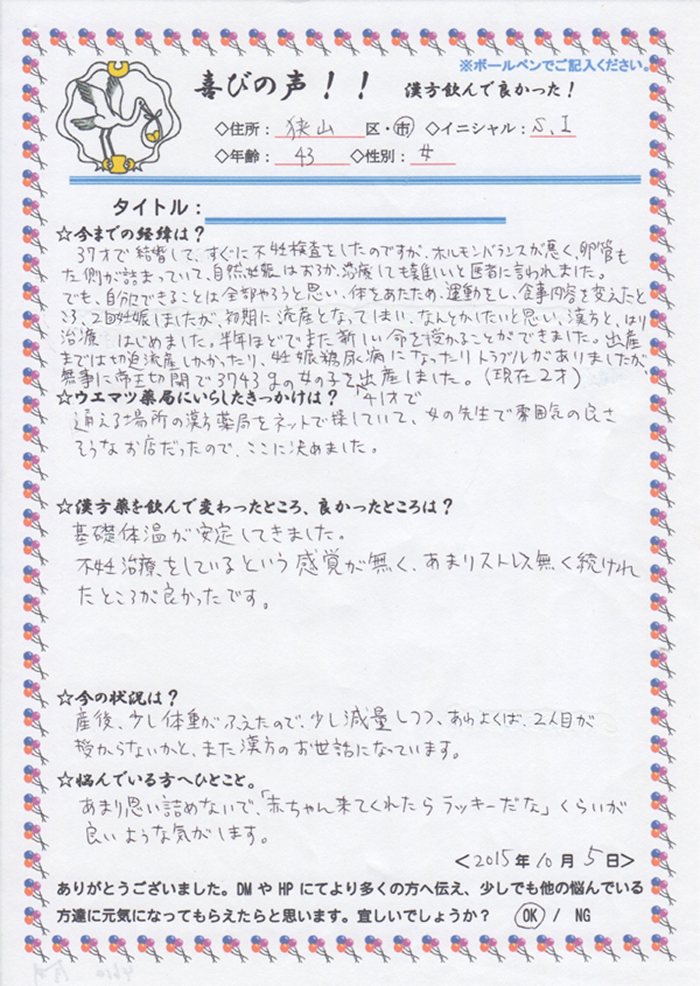 ※ボールペンでご記入ください。
喜びの声！！ 漢方飲んで良かった！
◇住所：狭山 区・市 ◇イニシャル：S、I
◇年齢：43 ◇性別：女
タイトル：
☆今までの経緯は？
37才で結婚して、すぐに不妊検査をしたのですが、ホルモンバランスが悪く、卵管も
左側が詰まっていて、自然妊娠はおろか、治療しても難しいと医者に言われました。
でも、自分でできることは全部やろうと思い、体をあたため、運動をし、食事内容を変えたと
ころ、2回妊娠しましたが、初期に流産となってしまい、なんとかしたいと思い、漢方と、はり
治療 はじめました。半年ほどでまた新しい命を授かることができました。出産
までは切迫流産しかかったり、妊娠糖尿病になったりトラブルがありましたが、
無事に帝王切開で3743gの女の子を出産しました。（現在2才）
41才で
☆ウエマツ薬局にいらしたきっかけは？
通える場所の漢方薬局をネットで探していて、女の先生で雰囲気の良さ
そうなお店だったので、ここに決めました。
☆漢方薬を飲んで変わったところ、良かったところは？
基礎体温が安定してきました。
不妊治療をしているという感覚が無く、あまりストレス無く続けれ
たところが良かったです。
☆今の状況は？
産後、少し体重がふえたので、少し減量しつつ、あわよくば、2人目が
授からないかと、また漢方のお世話になっています。
☆悩んでいる方へひとこと。
あまり思い詰めないで、「赤ちゃん来てくれたらラッキーだな」くらいが
良いような気がします。
＜2015年10月5日＞
ありがとうございました。DMやHPにてより多くの方へ伝え、少しでも他の悩んでいる
方達に元気になってもらえたらと思います。宜しいでしょうか？ OK / NG